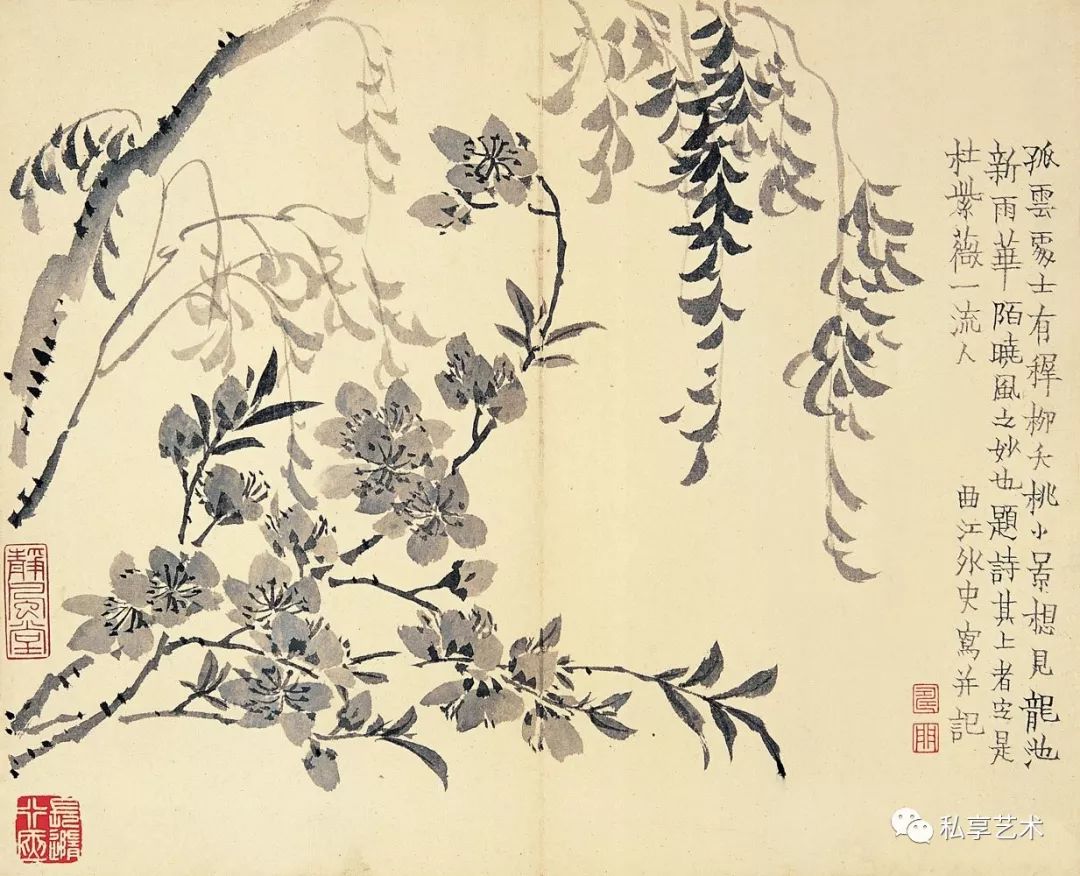 孤雲處士有穉柳夭桃小景想見龍池
新雨華陌曉風之妙也題詩其上者定是
杜紫薇一流人 曲江外史寫并記
私享艺术